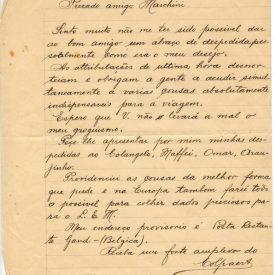 Presado amigo Marchini
Sinto muito não me ter sido possivel dar
ao bom amigo um abraço de despedida pes-
soalmente como era o meu desejo.
As attribulações de ultima hora desnor-
teiam e obrigam a gente a acudir simul-
taneamente à varias cousas absolutamente
indispensaveis para a viagem.
Espero que V. não levará a mal o
meu
Peço lhe apresentar por mim minhas des-
pedidas ao Colangelo, Maffei, Omar, Arau-
jinho.
Providenciei as cousas da melhor forma
que pude e na Europa tambem farei todo
o possivel para colher dados preciosos pa-
ra o L.E.M.
Meu endereço provisorio é Posta Restan-
te Gand - (Belgica).
Receba um forte amplexo do